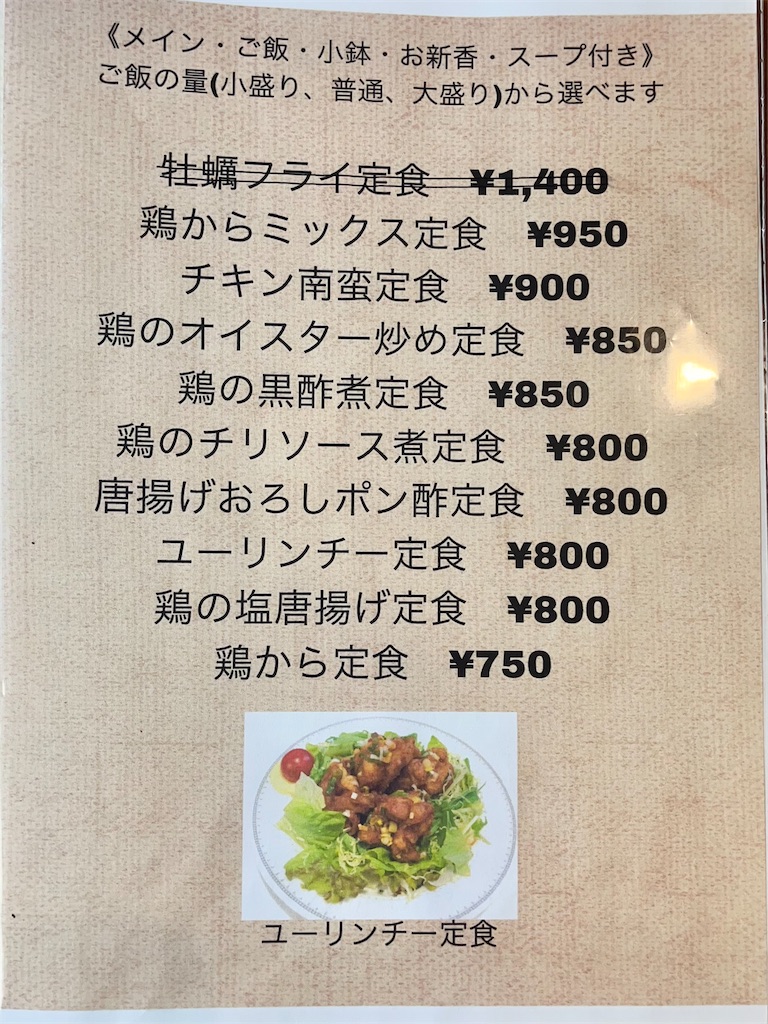 《メイン・ご飯・小鉢・お新香・スープ付き》
ご飯の量(小盛り、普通、大盛り)から選べます
牡蠣フライ定食 ¥1,400
鶏からミックス定食 ¥950
チキン南蛮定食 ¥900
鶏のオイスター炒め定食 ¥850
鶏の黒酢煮定食 ¥850
鶏のチリソース煮定食 ¥800
唐揚げおろしポン酢定食 ¥800
ユーリンチー定食 ¥800
鶏の塩唐揚げ定食 ¥800
鶏から定食 ¥750
ユーリンチー定食